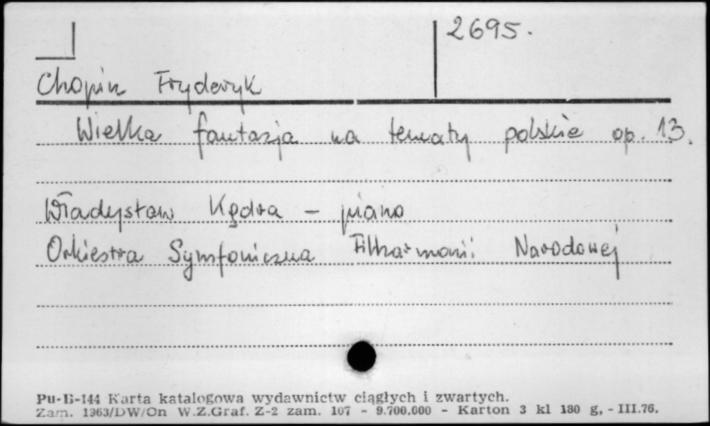 2695.
Chopin Fryderyk
Wielka fantazja na tematy polskie op. 13.
Władysław Kędra – piano
Orkiestra Symfoniczna Filharmonii Narodowej
Pu-B-144 Karta katalogowa wydawnictw ciągłych i zwartych.
Zam. 1363/DW/On W.Z.Graf. Z-2 zam. 107 - 9.700.000 - Karton 3 kl 180 g, - III.76.